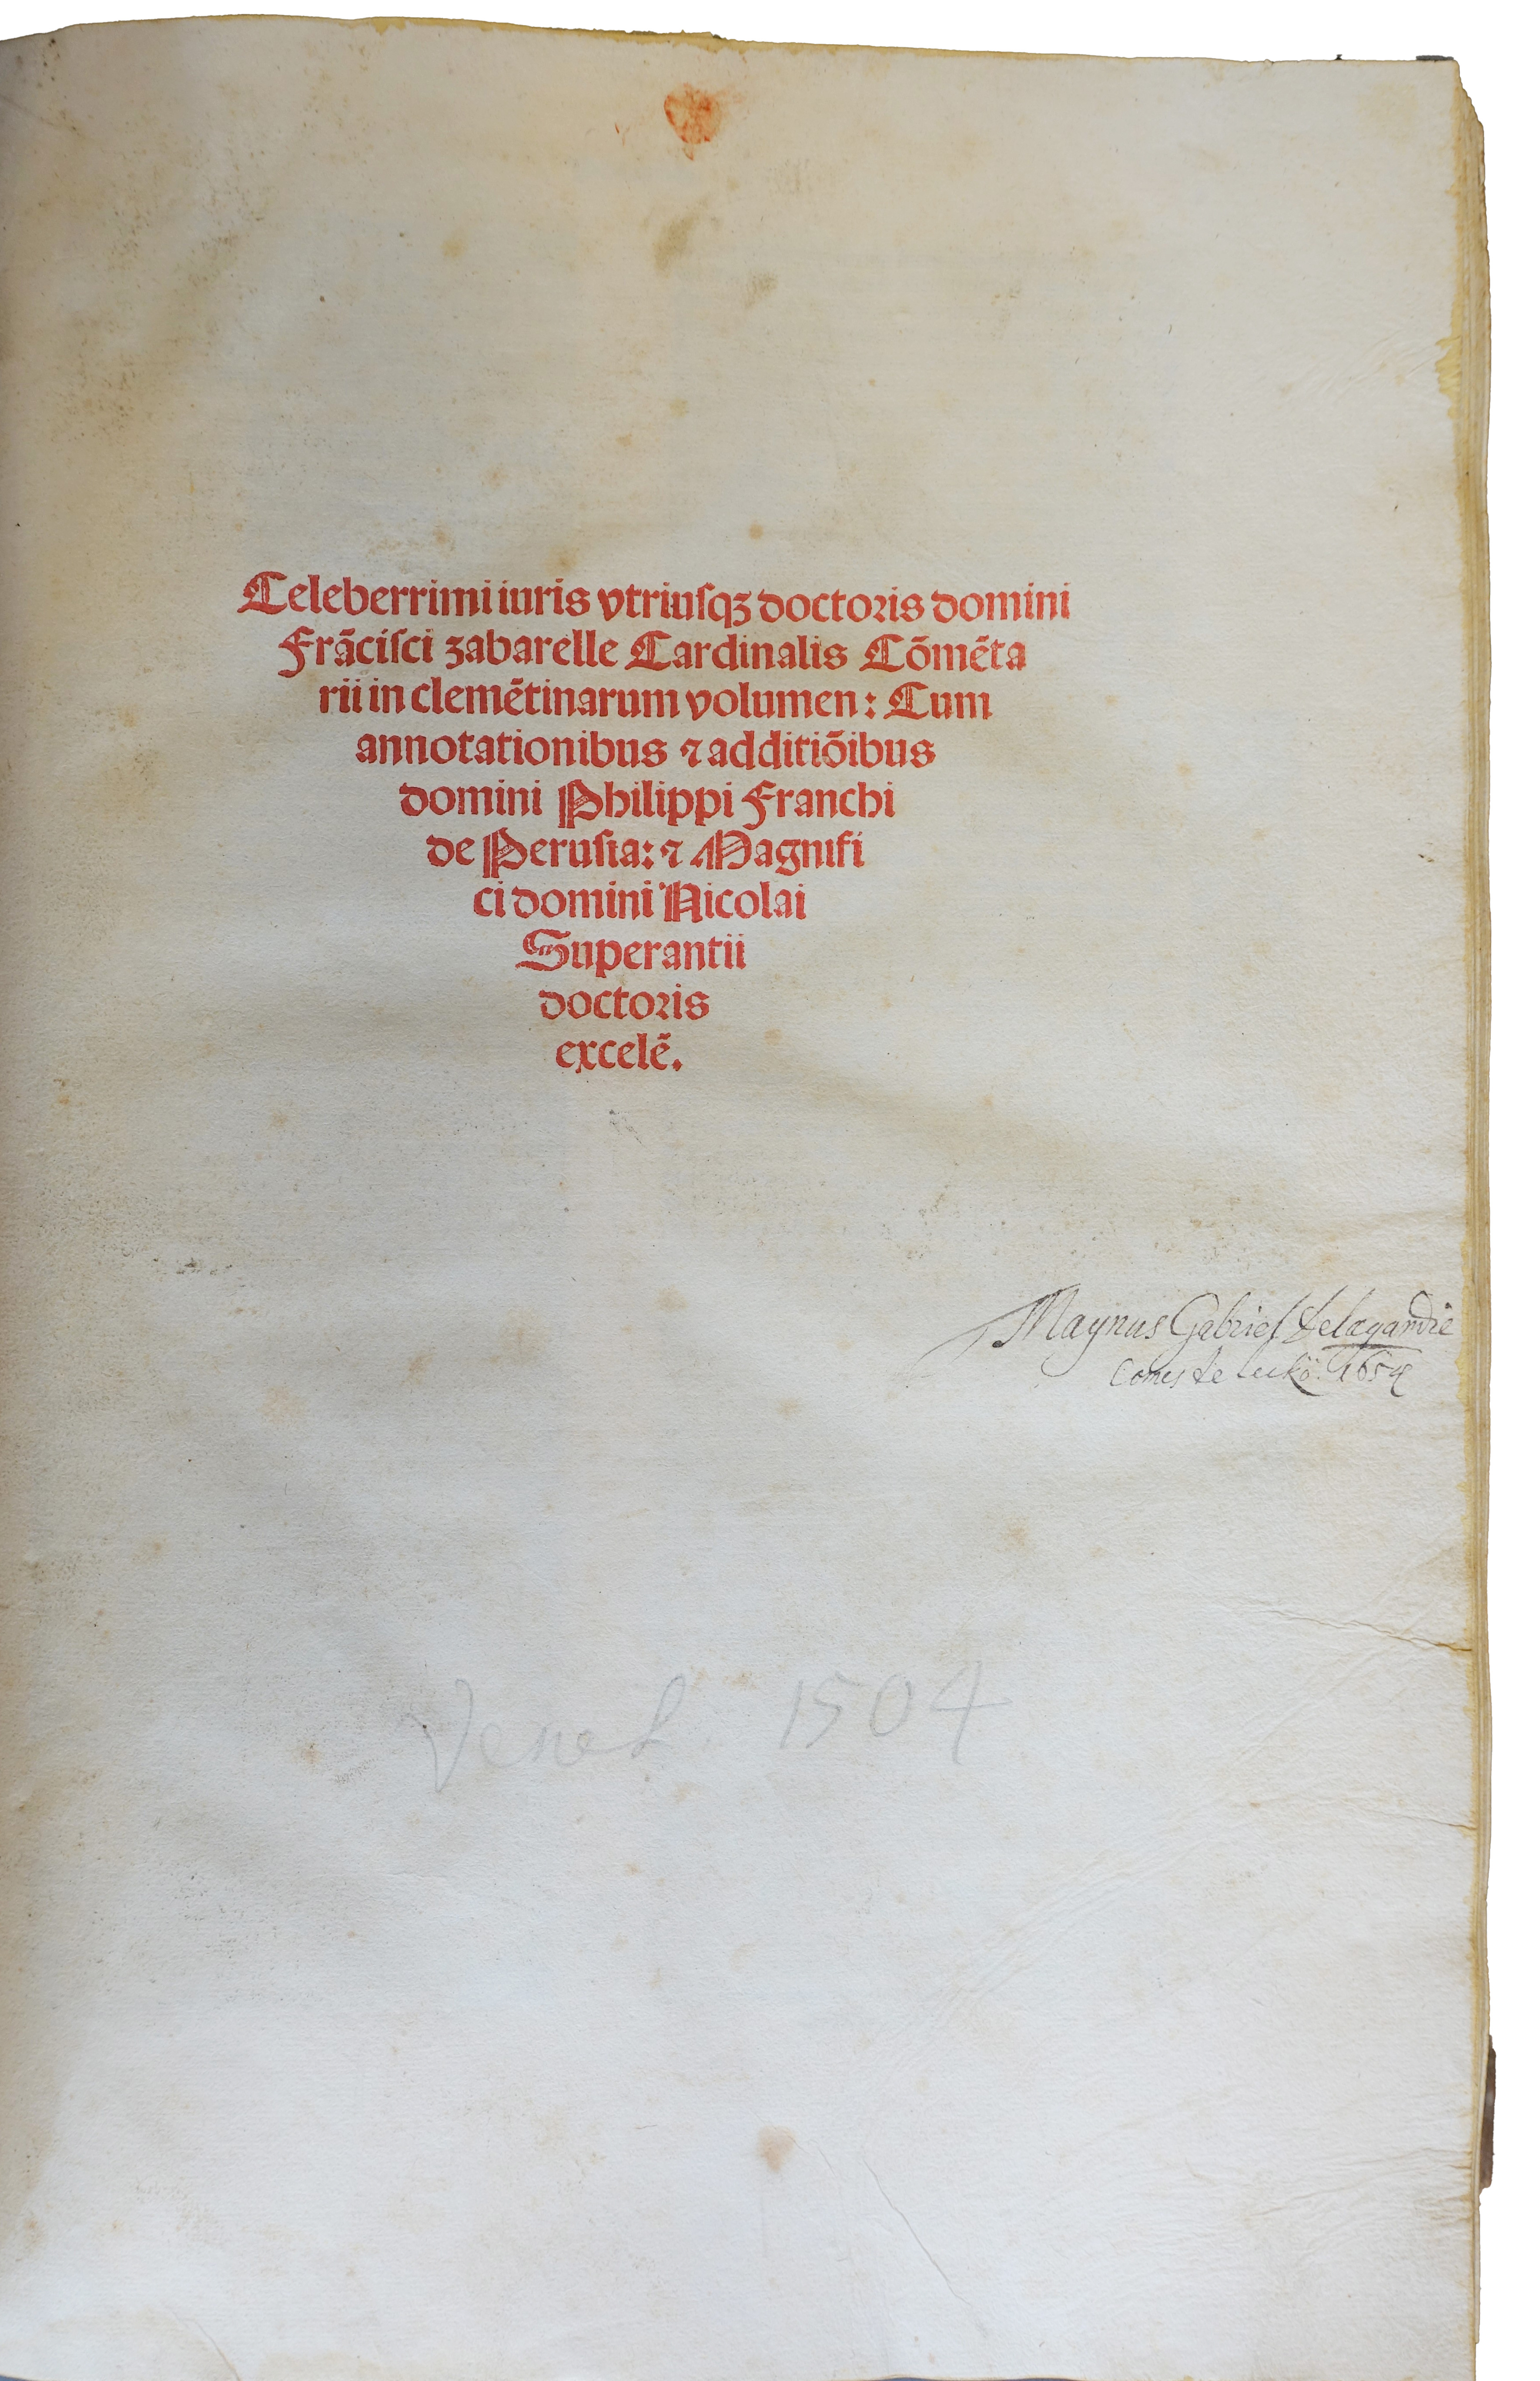 Celeberrimi iuris vtriuſqꝫ doctoris domini
Frãciſci zabarelle Cardinalis Cõmẽta
rii in clemẽtinarum volumen: Cum
annotationibus ⁊ additiõibus
domini Philippi Franchi
de Peruſia: ⁊ Magnifi
ci domini Nicolai
Superantii
doctoris
excelẽ.
Magnus Gabriel Delagardie
Comes de Leckö. 1654
Venet. 1504